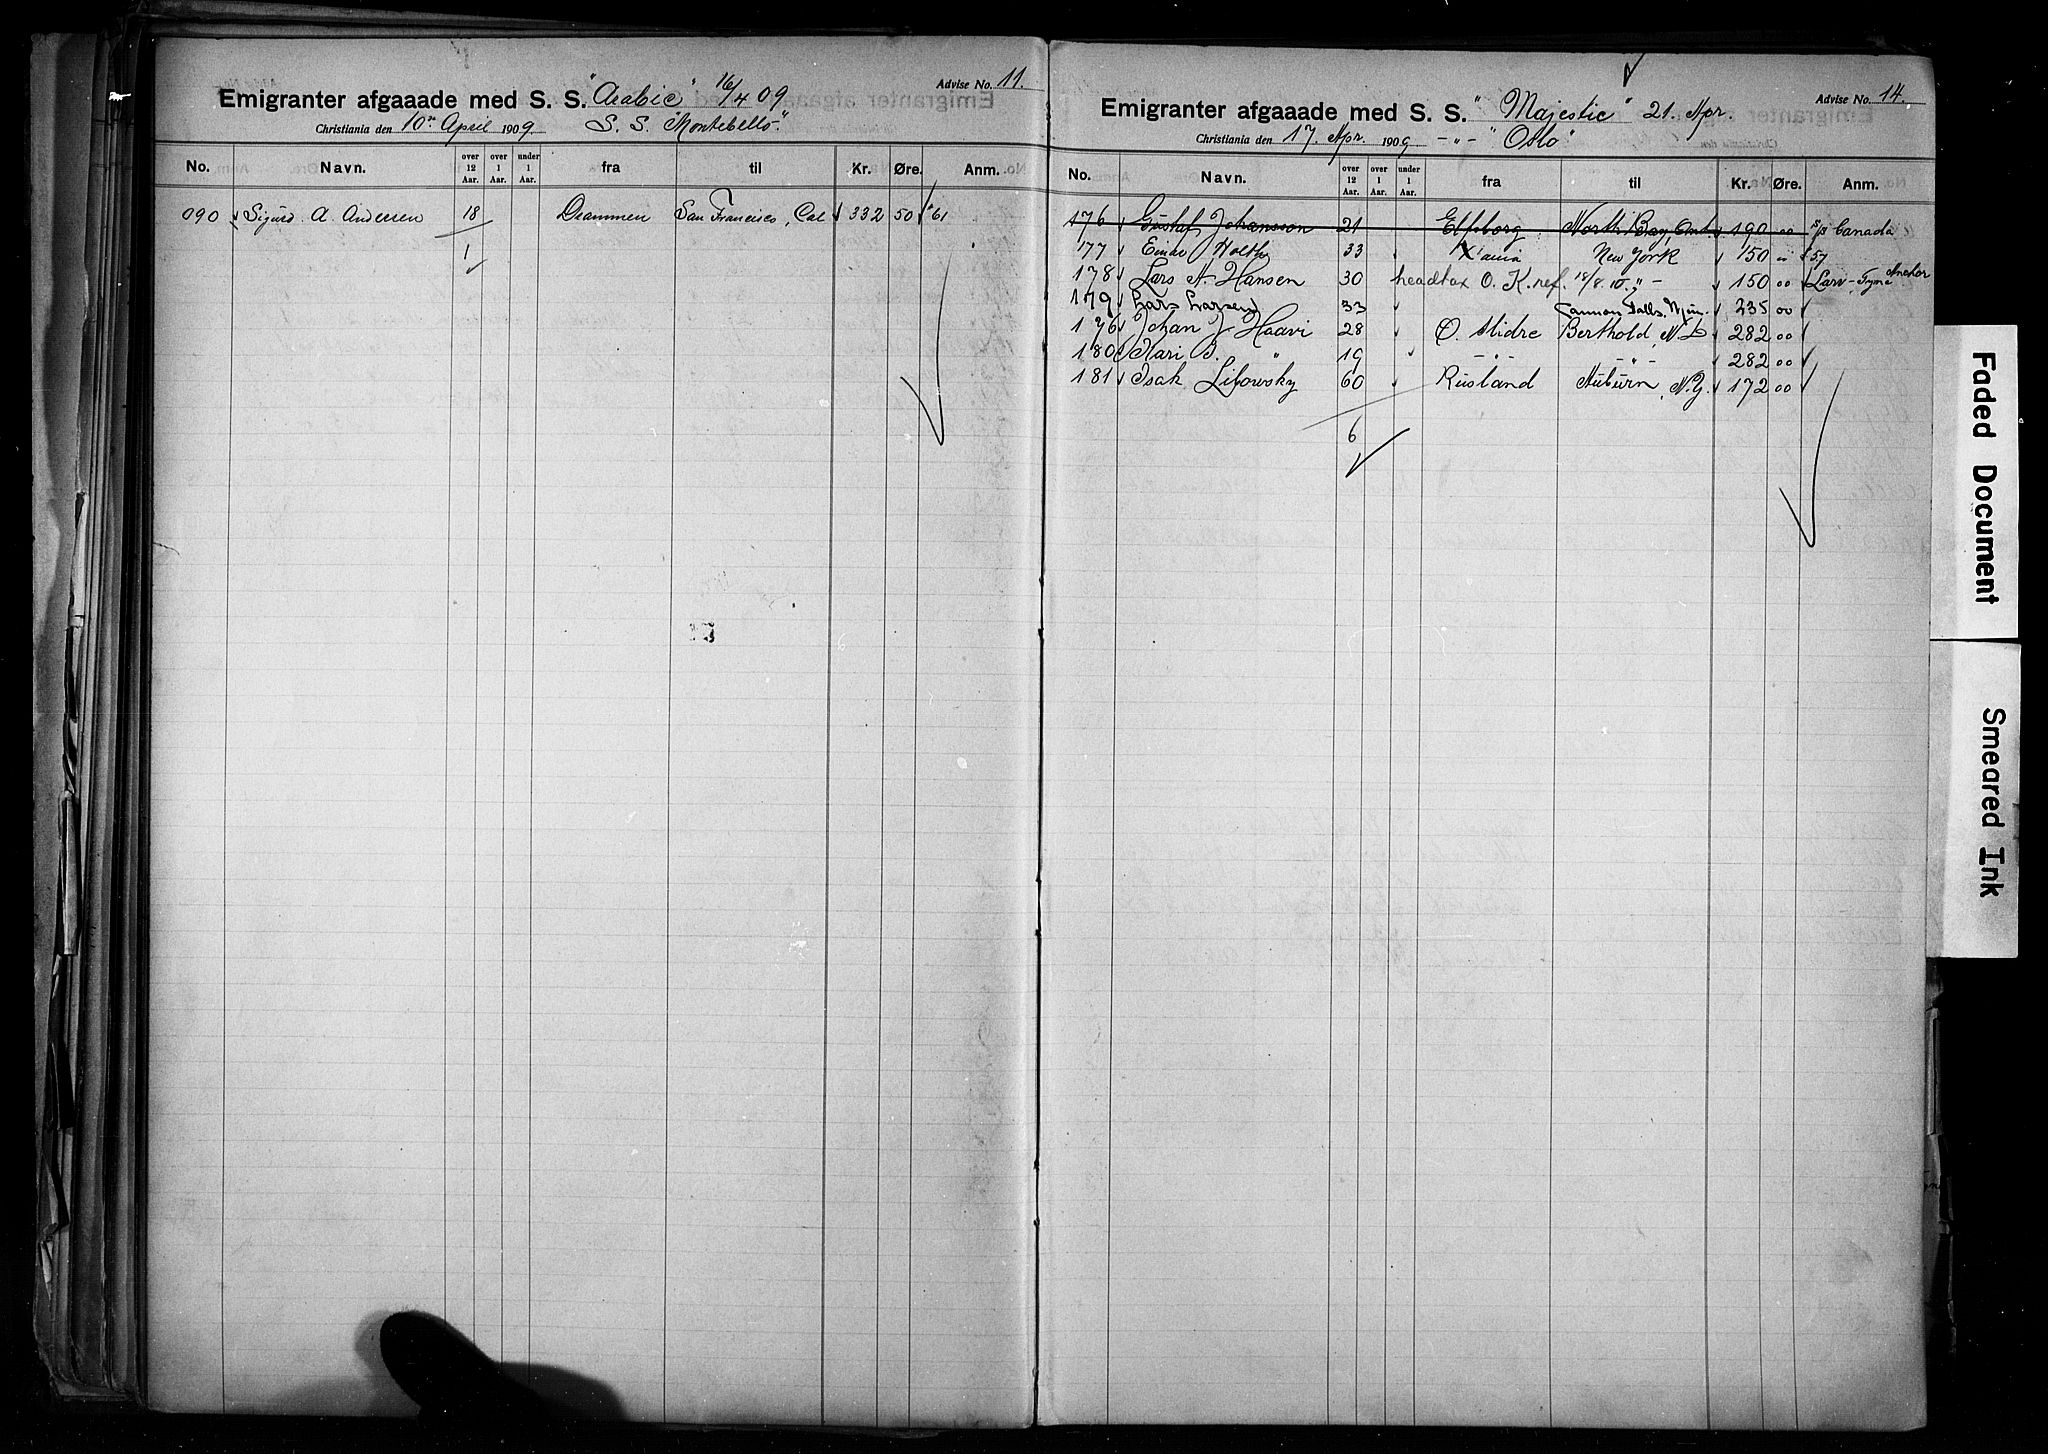 Advise No. 11.
Emigranter afgaaade med S. S. "Arabic" 16/4 09
Christiania den 10de April 1909 S. S. "Montebello".
No. Navn. over 12 Aar. over 1 Aar. under 1 Aar. fra til Kr. Øre. Anm.
090 Sigurd A. Andersen 18 Drammen San Francisco, Cal 332 50 61
1
Advise No. 14.
Emigranter afgaaade med S. S. "Majestic" 21. Apr.
Christiania den 17. Apr. 1909 -"- "Oslo"
No. Navn. over 12 Aar. over 1 Aar. under 1 Aar. fra til Kr. Øre. Anm.
176 Gustaf Johansson 21 Elfsborg North Bay, Ont 190 00 Canada
177 Einar Holth 33 X'ania New York 150 " 57
178 Lars A. Hansen 30 headtax O. K. ref. 18/8 10. " - 150 00 Larv - Tyne Anchor
179 Lars Larsen 33 Cannon Falls, Min. 235 00
176 Johan J. Haavi 28 O. Slidre Berthold, N. D. 282 00
180 Kari B. " 19 -"- -"- 282 00
181 Isak Libowsky 60 Rusland Auburn, N.Y. 172 00
6
Faded Document
Smeared Ink